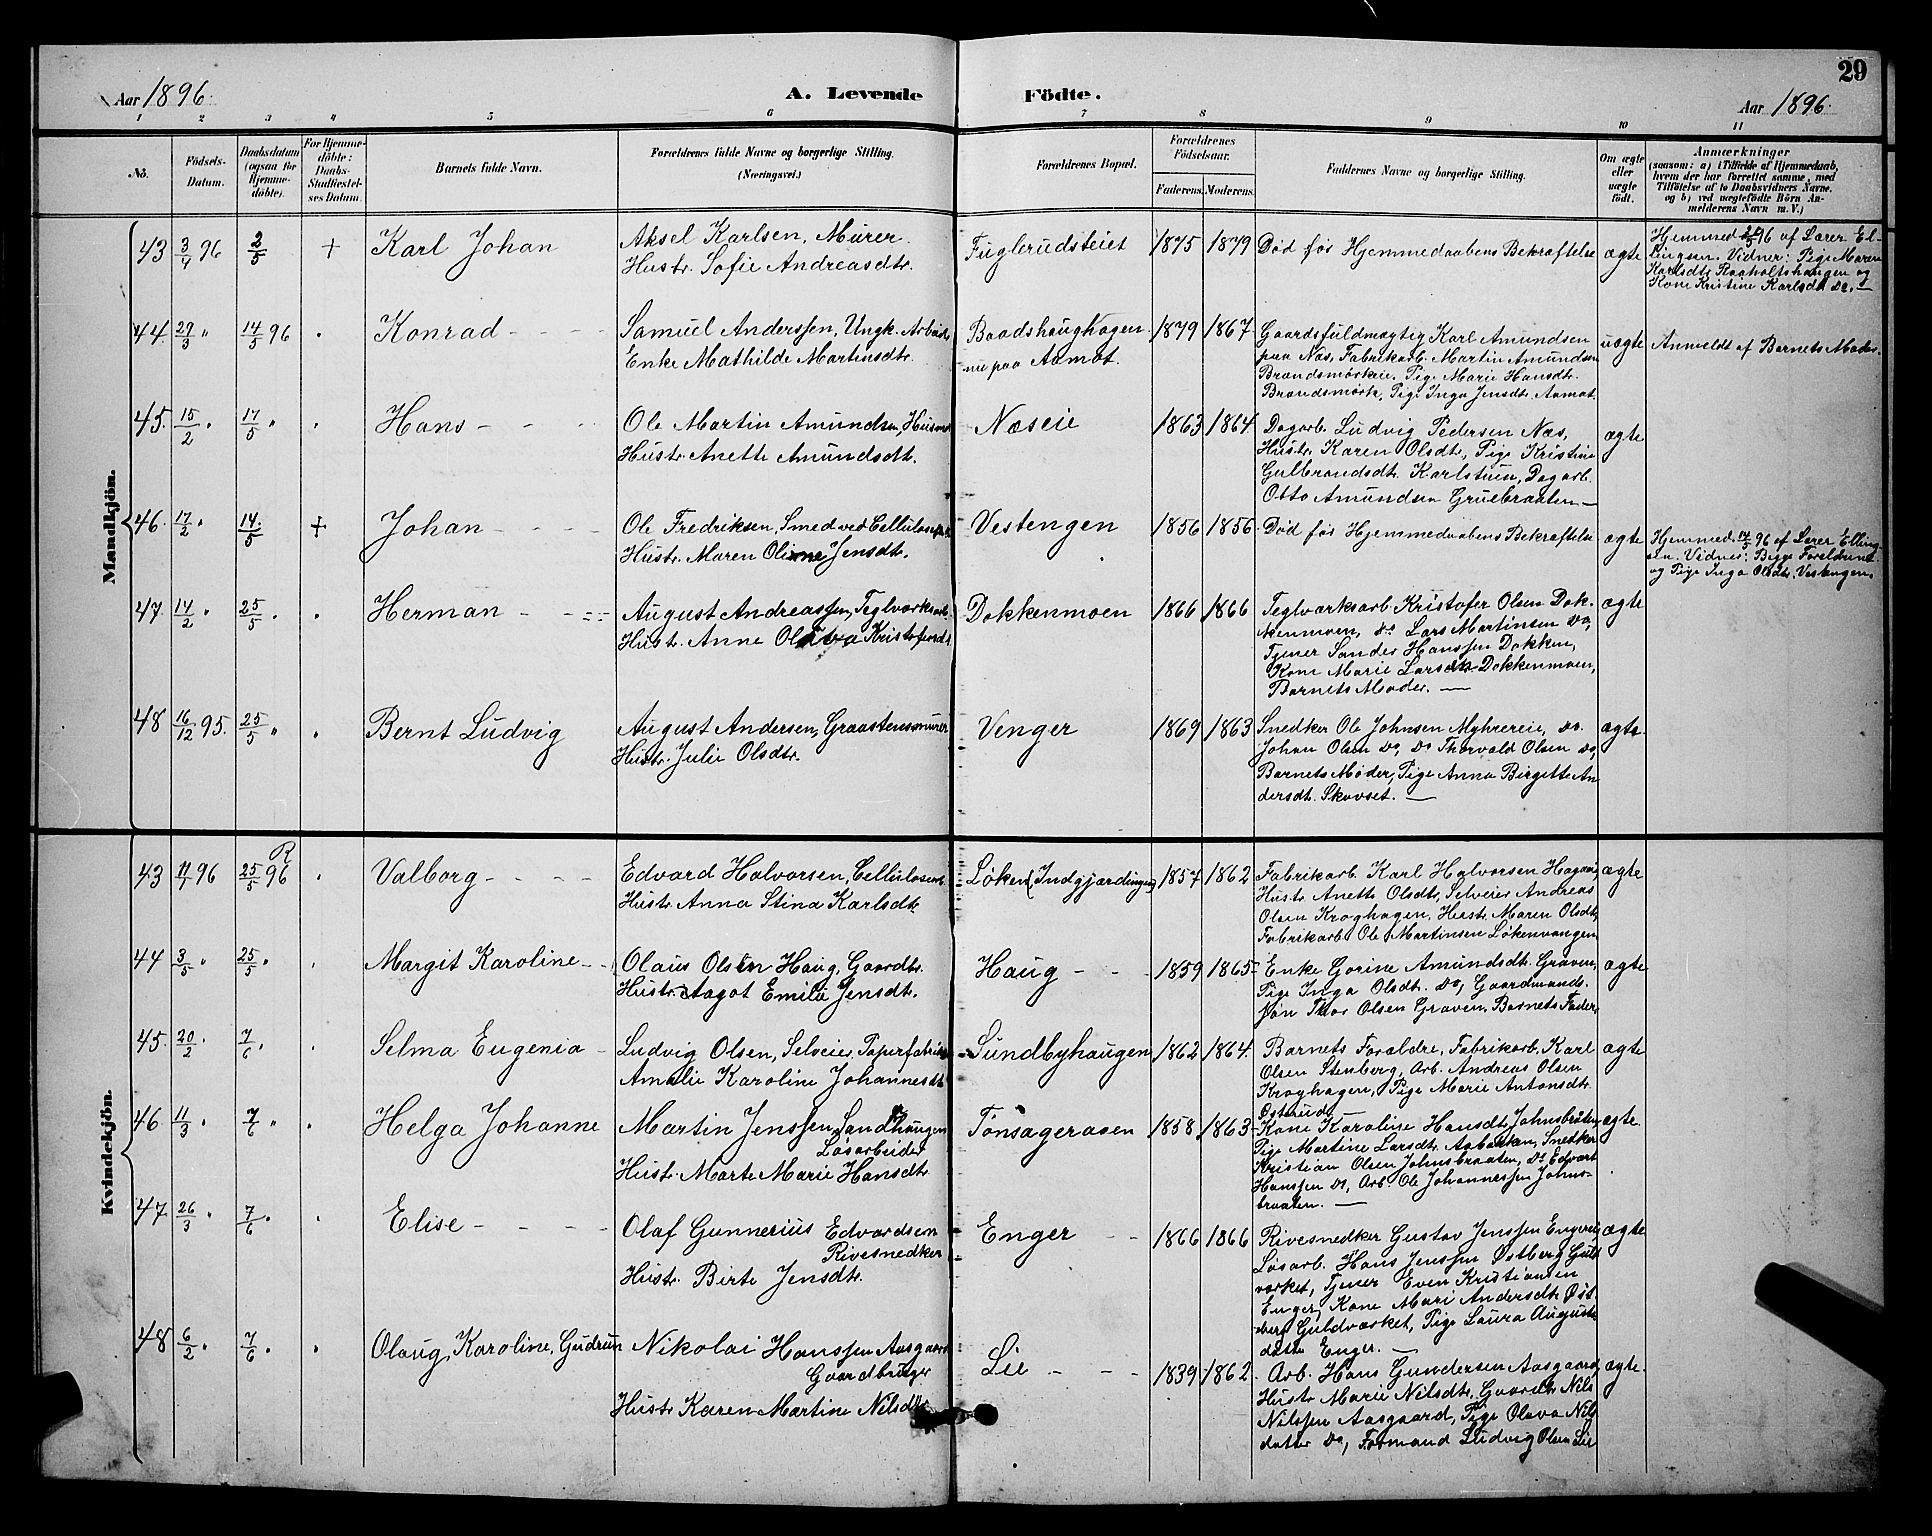 29
Aar 1896.
A. Levende Födte.
Aar 1896.
1 2 3 4 5 6 7 8 9 10 11
No.
Födsels-
Datum.
Daabsdatum
(ogsaa for
Hjemme-
döbte).
For Hjemme-
döbte:
Daabs-
Stadfæstel-
ses Datum.
Barnets fulde Navn.
Forældrenes fulde Navne og borgerlige Stilling.
(Næringsvei.)
Forældrenes Bopæl.
Forældrenes
Födselsaar.
Faderens. Moderens.
Faddernes Navne og borgerlige Stilling.
Om ægte
eller
uægte
födt.
Anmærkninger
(saasom: a) i Tilfælde af Hjemmedaab,
hvem der har forrettet samme, med
Tilföielse af to Daabsvidners Navne,
og b) ved uægtefödte Börn An-
melderens Navn m. V.)
Mandkjön.
43 3/4 96 2/5 + Karl Johan
Aksel Karlsen, Murer
Hustr. Sofie Andreasdtr.
Fuglerudsteiet 1875 1879 Død før Hjemmedaabens Bekræftelse ægte
Hjemmed. 2/5 96 af Lærer El-
lingsen. Vidner: Pige Maren
Karlsdtr. Raaholtshaugen og
Kone Kristine Karlsdtr. Do. —
44. 29/3 " 14/5 96 Konrad
Samuel Anderssen, Ungk. Arbeider
Enke Mathilde Martinsdtr.
Baadshaughagen
nu paa Aamot.
1879 1867
Gaardsfuldmægtig Karl Amundsen
paa Næs, Fabrikarb. Martin Amundsen
Brændsmörkeie, Pige Marie Hansdtr.
Brændsmörk, Pige Inga Jensdtr. Aamot.
uægte Anmeldt af Barnets Moder.
45. 15/2 " 17/5 " Hans
Ole Martin Amundsen, Husmd
Hustr. Anette Amundsdtr.
Næseie 1863 1864
Dagarb. Ludvig Pedersen Næs,
Hustr. Karen Olsdtr., Pige Kristine
Gulbrandsdtr. Karlstuen, Dagarb.
Otto Amundsen Gruebraaten —
ægte
46. 17/2 " 14/5 + Johan
Ole Fredriksen, Smed ved Cellulosefab.
Hustr. Maren Oline Jensdtr.
Vestengen 1856 1856 Død før Hjemmedaabens Bekræftelse ægte
Hjemmed. 14/5 96 af Lærer Elling-
sen. Vidner: Begge Forældrene
og Pige Inga Olsdtr. Vestengen.
47. 14/2 " 25/5 " Herman
August Andreassen, Teglværksarb.
Hustr. Anne Olava Kristofersdtr.
Dokkenmoen 1866 1866
Teglværksarb. Kristofer Olsen Dok-
kenmoen, Do Lars Martinsen Do,
Tjener Sander Hanssen Dokken,
Kone Marie Larsdtr. Dokkenmoen,
Barnets Moder. —
ægte
48 16/12 95. 25/5 " Bernt Ludvig
August Andersen, Graastensmurer
Hustr. Julie Olsdtr.
Venger 1869 1863
Snedker Ole Johnsen Myhrereie, Do.
Johan Olsen Do, Do Thorvald Olsen Do,
Barnets Moder, Pige Anna Birgitte An
dersdtr. Skovset. —
ægte.
Kvindekjön.
43 11/1 96 25/5 96 R Valborg
Edvard Halvorsen, Cellulosearb.
Hustr. Anna Stina Karlsdtr.
Løken (Indgjærdingen) 1857 1862
Fabrikarb. Karl Halvorsen Hagen,
Hustr. Anette Olsdtr, Selveier Andreas
Olsen Kroghagen, Hustr. Maren Olsdtr,
Fabrikarb. Ole Martinsen Løkenvangen
ægte
44 3/5 " 25/5 " Margit Karoline
Olaus Olsen Haug, Gaardbr.
Hustr. Aagot Emilie Jensdtr.
Haug 1859 1865
Enke Gorine Amundsdtr. Graven,
Pige Inga Olsdtr. Do, Gaardmands.
søn Thor Olsen Graven, Barnets Fader
ægte
45. 20/2 " 7/6 " Selma Eugenia
Ludvig Olsen, Selveier, Papirfabrik
Amalie Karoline Johannesdtr
Sundbyhaugen 1862 1864
Barnets Forældre, Fabrikarb. Karl
Olsen Stenberg, Arb. Andreas Olsen
Kroghagen, Pige Marie Antonsdtr.
Østerud
ægte
46 11/3 " 7/6 " Helga Johanne
Martin Jenssen Sandhaugen
Løsarbeider
Hustr. Marte Marie Hansdtr.
Tønsageraaen 1858 1863
Kone Karoline Hansdtr. Johnsbraaten
Pige Martine Larsdtr. Aabakken, Snedker
Kristian Olsen Johnsbraaten, Do Edvart
Hanssen Do, Arb. Ole Johannessen Johns-
braaten. —
ægte.
47 26/3 " 7/6 " Elise
Olaf Gunnerius Edvardsen
Rivesnedker
Hustr. Birte Jensdtr.
Enger 1866 1866
Rivesnedker Gustav Jenssen Engereie
Løsarb. Hans Jenssen Østberg Guld
værket, Tjener Even Kristiansen
Enger, Kone Mari Andersdtr. Øst
berg Guldværket, Pige Laura Augusta
datter Enger. —
ægte
48 6/2 " 7/6 " Olaug, Karoline, Gudrun
Nikolai Hanssen Aasgaard
Gaardbruger
Hustr. Karen Martine Nilsdtr.
Lie 1839 1862
Arb. Hans Gundersen Aasgaard,
Hustr. Marie Nilsdtr, Gaardbr. Nils
Nilssen Aasgaard, Pige Olava Nils
datter Do, Formand Ludvig Olsen Lie
ægte.